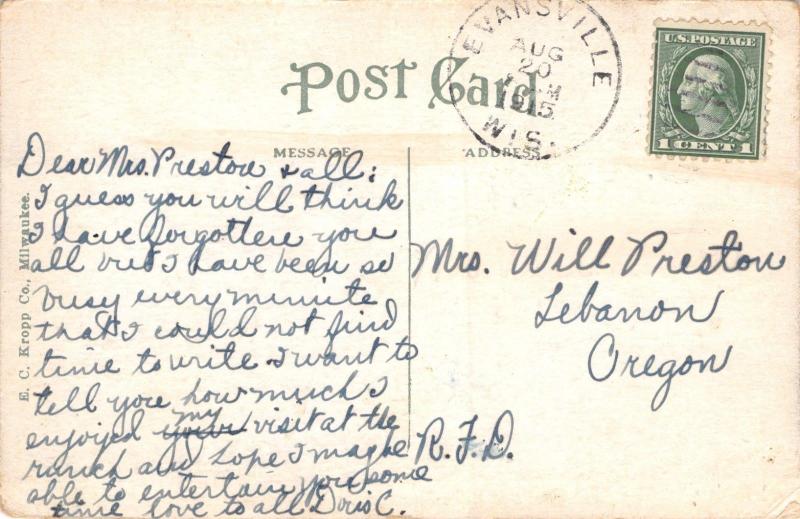 EVANSVILLE
AUG
20
M
1915
WIS.
U.S. POSTAGE
1 CENT 1
Post Card
MESSAGE
ADDRESS
E. C. Kropp Co., Milwaukee.
Dear Mrs. Preston & all:
I guess you will think
I have forgotten you
all but I have been so
busy every minute
that I could not find
time to write. I want to
tell you how much I
enjoyed your my visit at the
ranch and hope I maybe
able to entertain you some
time love to all Doris C.
Mrs. Will Preston
Lebanon
Oregon
R.F.D.